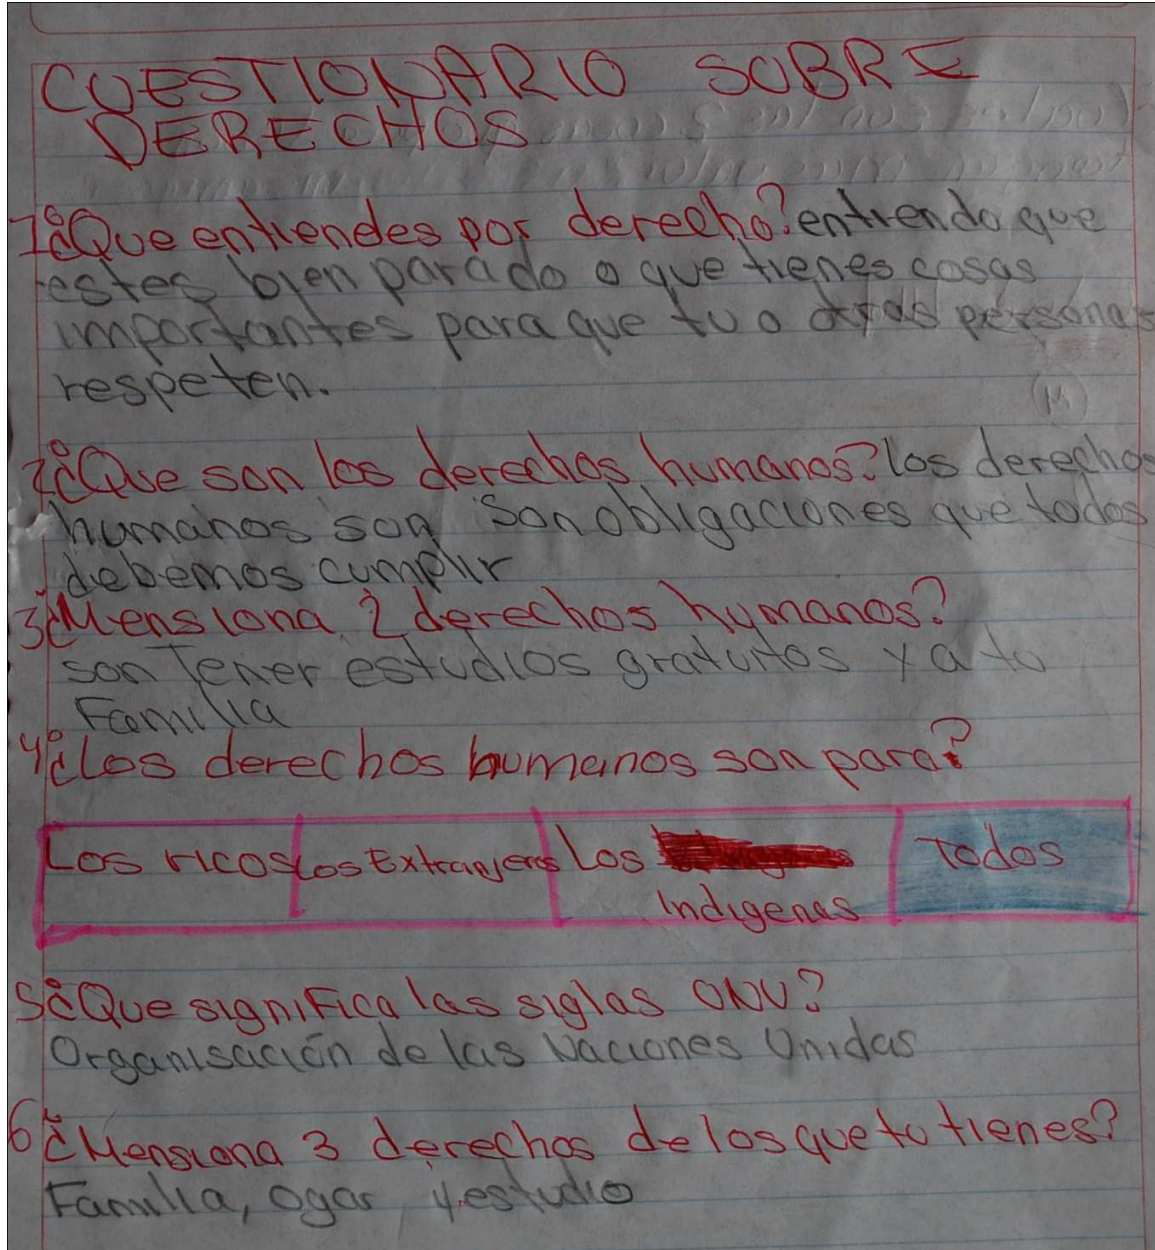 CUESTIONARIO SOBRE
DERECHOS
1¿Que entiendes por derecho? entiendo que
estes bien parado o que tienes cosas
importantes para que tu o otras personas
respeten.
2¿Que son los derechos humanos? los derechos
humanos son son obligaciones que todos
debemos cumplir
3¿Mensiona 2 derechos humanos?
son Tener estudios gratuitos y a tu
Familia
4¿los derechos humanos son para?
Los ricos los Extranjeros Los Todos
Indigenas
5¿Que significa las siglas ONU?
Organisación de las Naciones Unidas
6¿Mensiona 3 derechos de los que tu tienes?
Familia, ogar y estudio